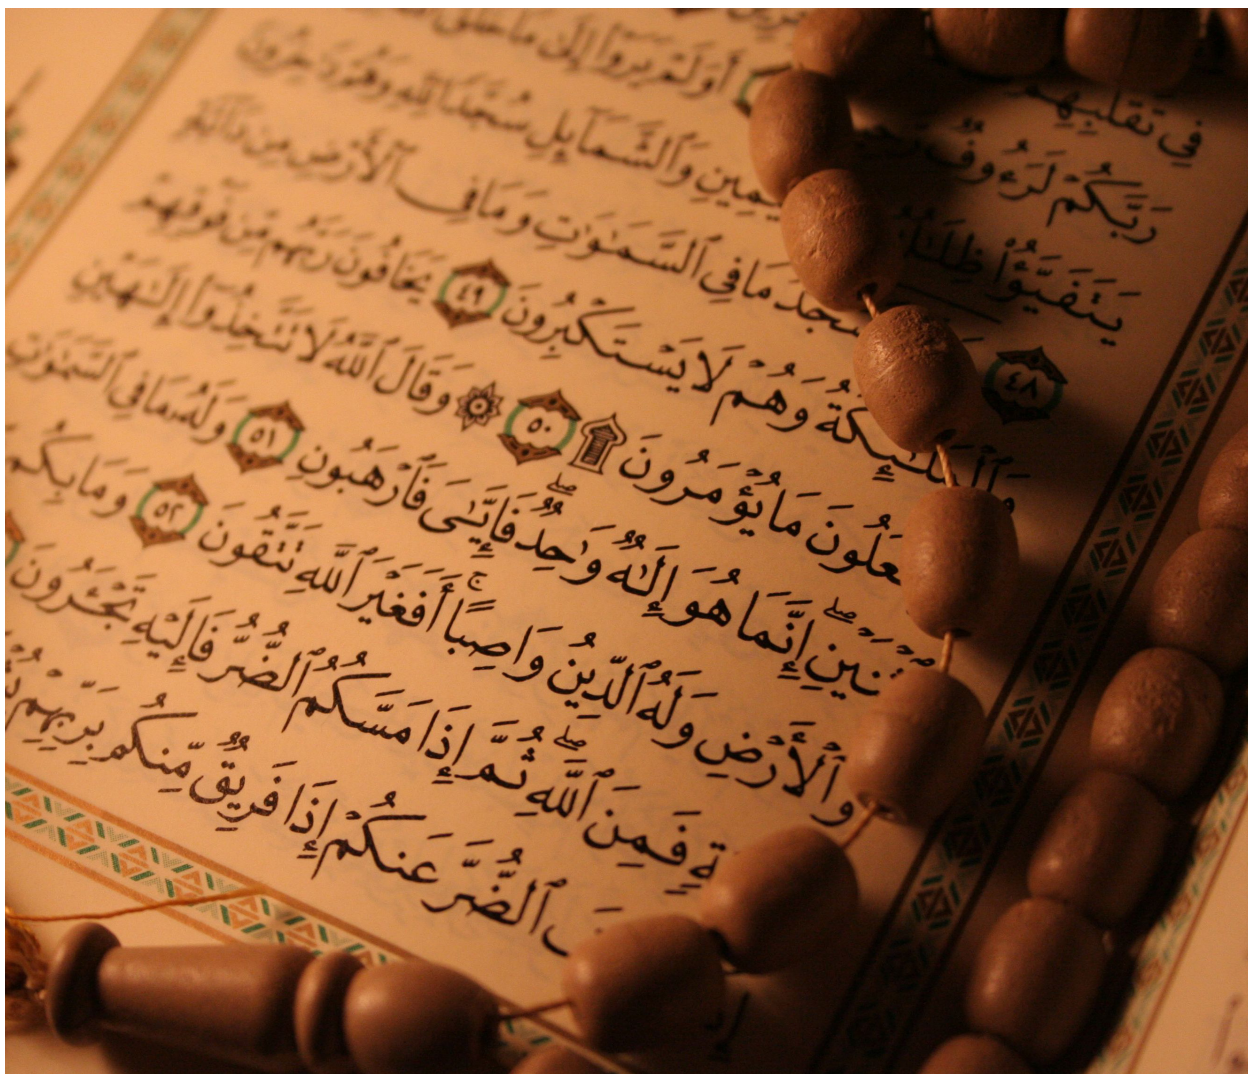 فِي تَقَلُّبِهِمْ
رَبَّكُمْ لَرَءُوفٌ أَوَلَمْ يَرَوْا۟ إِلَىٰ مَا خَلَقَ
يَتَفَيَّؤُا۟ ظِلَٰلُهُۥ ٱلْيَمِينِ وَٱلشَّمَآئِلِ سُجَّدًا لِّلَّهِ وَهُمْ دَٰخِرُونَ
٤٨ يَسْجُدُ مَا فِي ٱلسَّمَٰوَٰتِ وَمَا فِي ٱلْأَرْضِ مِن دَآبَّةٍ
وَٱلْمَلَٰٓئِكَةُ وَهُمْ لَا يَسْتَكْبِرُونَ ٤٩ يَخَافُونَ رَبَّهُم مِّن فَوْقِهِمْ
وَيَفْعَلُونَ مَا يُؤْمَرُونَ ۩ ٥٠ ۞ وَقَالَ ٱللَّهُ لَا تَتَّخِذُوٓا۟ إِلَٰهَيْنِ
ٱثْنَيْنِۖ إِنَّمَا هُوَ إِلَٰهٌ وَٰحِدٌۖ فَإِيَّٰيَ فَٱرْهَبُونِ ٥١ وَلَهُۥ مَا فِي ٱلسَّمَٰوَٰتِ
وَٱلْأَرْضِ وَلَهُ ٱلدِّينُ وَاصِبًاۚ أَفَغَيْرَ ٱللَّهِ تَتَّقُونَ ٥٢ وَمَا بِكُم
فَمِنَ ٱللَّهِۖ ثُمَّ إِذَا مَسَّكُمُ ٱلضُّرُّ فَإِلَيْهِ تَجْـَٔرُونَ
ٱلضُّرَّ عَنكُمْ إِذَا فَرِيقٌ مِّنكُم بِرَبِّهِمْ